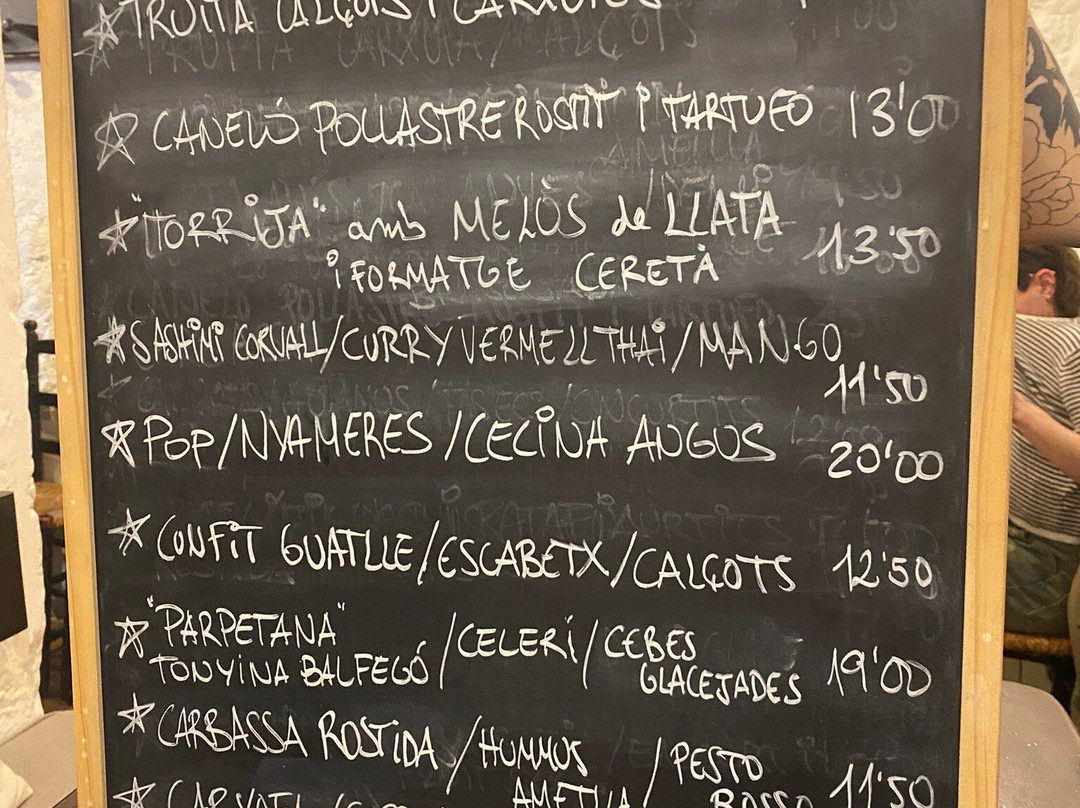 TRUITA CALÇOTS I CARXOFES
CANELÓ POLLASTRE ROSTIT i TARTUFO 13'00
"TORRIJA" amb MELÒS de LLATA
i FORMATGE CERETÀ 13'50
SASHIMI CORVALL/CURRY VERMELL THAI/MANGO
11'50
POP/NYAMERES/CECINA ANGUS 20'00
CONFIT GUATLLE/ESCABETX/CALÇOTS 12'50
"PARPETANA"
TONYINA BALFEGÓ/CELERI/CEBES
GLACEJADES 19'00
CARBASSA ROSTIDA/HUMMUS
AMETLLA/PESTO
ROSSO 11'50